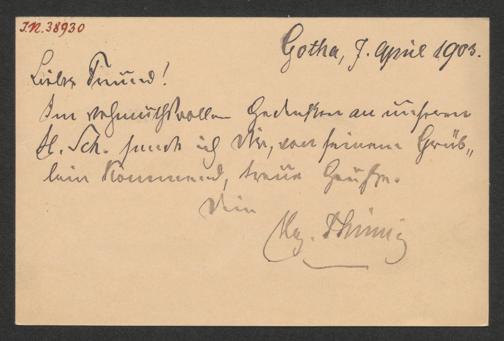 I.N. 38930
Gotha, 7. April 1903.
Lieber Freund!
Im wehmuthsvollen Gedenken an unseren
H. Sch. sende ich Dir, von seinem Grab-
lein kommend, treue Grüße.
Dein